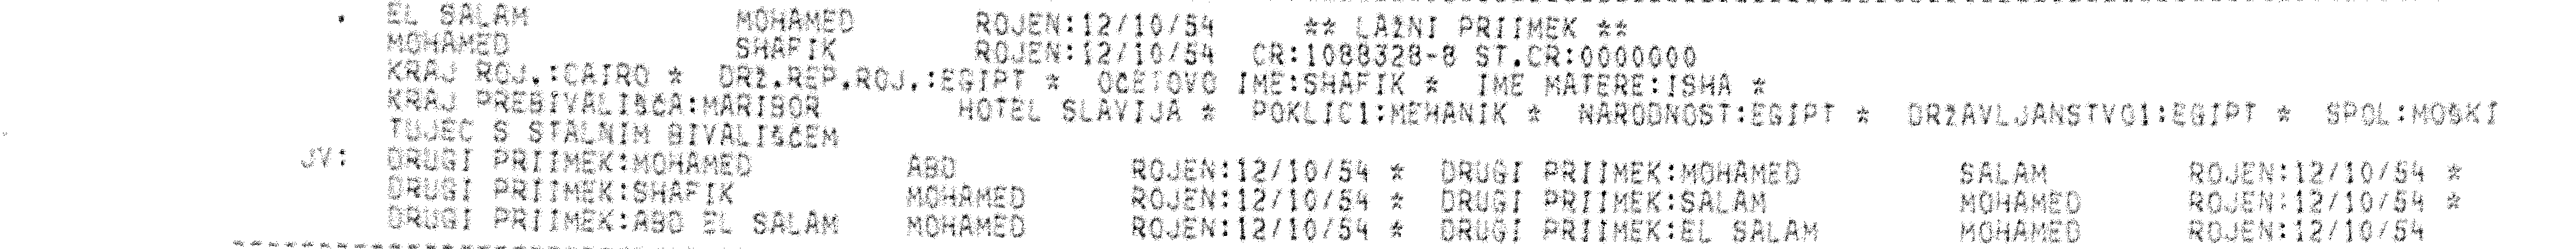 . EL SALAM MOHAMED ROJEN:12/10/54 ** LAŽNI PRIIMEK **
MOHAMED SHAFIK ROJEN:12/10/54 CR:1088328-8 ST.CR:0000000
KRAJ ROJ.:CAIRO * DRŽ.REP.ROJ.:EGIPT * OČETOVO IME:SHAFIK * IME MATERE:ISHA *
KRAJ PREBIVALIŠČA:MARIBOR HOTEL SLAVIJA * POKLIC1:MEHANIK * NARODNOST:EGIPT * DRŽAVLJANSTVO1:EGIPT * SPOL:MOŠKI
TUJEC S STALNIM BIVALIŠČEM
JV: DRUGI PRIIMEK:MOHAMED ABD ROJEN:12/10/54 * DRUGI PRIIMEK:MOHAMED SALAM ROJEN:12/10/54 *
DRUGI PRIIMEK:SHAFIK MOHAMED ROJEN:12/10/54 * DRUGI PRIIMEK:SALAM MOHAMED ROJEN:12/10/54 *
DRUGI PRIIMEK:ABD EL SALAM MOHAMED ROJEN:12/10/54 * DRUGI PRIIMEK:EL SALAM MOHAMED ROJEN:12/10/54